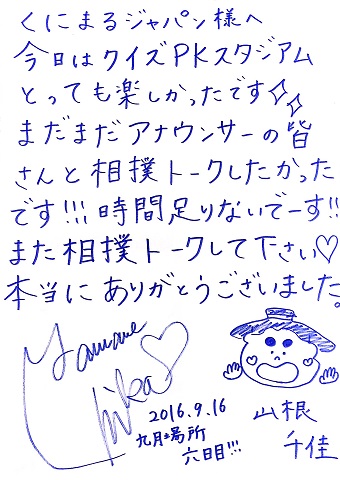 くにまるジャパン様へ
今日はクイズPKスタジアム
とっても楽しかったです✧✧
まだまだアナウンサーの皆
さんと相撲トークしたかった
です!!!時間足りないでーす!!
また相撲トークして下さい♡
本当にありがとうございました。
Yamane
Chika♡
2016.9.16
九月場所
六日目!!!
山根
千佳